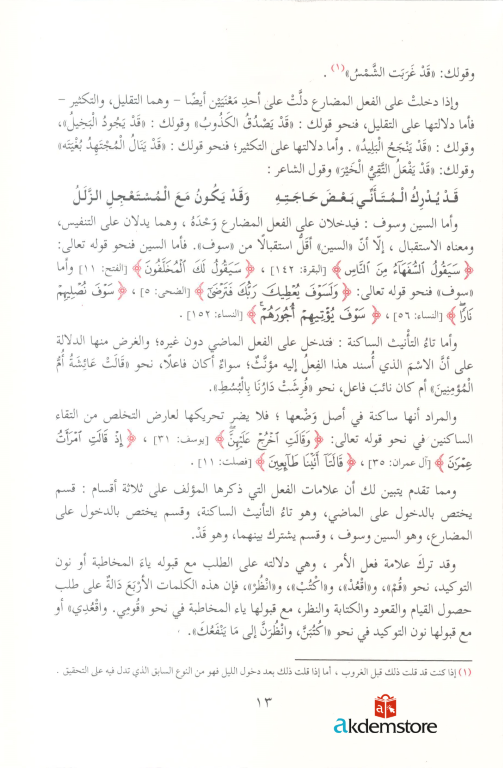 وقولك: «قَدْ غَرَبَت الشَّمْسُ»(١) .
وإذا دخلتْ على الفعل المضارع دلَّتْ على أحدِ مَعْنَيَيْن أيضًا – وهما التقليل، والتكثير –
فأما دلالتها على التقليل، فنحو قولك : «قَدْ يَصْدُقُ الكَذُوبُ» وقولك : «قَدْ يَجُودُ البَخِيلُ»،
وقولك : «قَدْ يَنْجَحُ البَلِيدُ» . وأما دلالتها على التكثير؛ فنحو قولك : «قَدْ يَنَالُ المُجْتَهِدُ بُغْيَتَه»
وقولك: «قَدْ يَفْعَلُ التَّقِيُّ الخَيْرَ» وقول الشاعر :
قَدْ يُدْرِكُ الْـمُـتَـأَنِّـي بَـعْـضَ حَـاجَـتِـهِ وَقَدْ يَكُونُ مَعَ الْـمُسْتَعْجِلِ الزَّلَلُ
وأما السين وسوف : فيدخلان على الفعل المضارع وَحْدَهُ ، وهما يدلان على التنفيس،
ومعناه الاستقبال ، إلَّا أنَّ «السين» أقلُّ استقبالًا من «سوف». فأما السين فنحو قوله تعالى:
﴿سَيَقُولُ السُّفَهَاءُ مِنَ النَّاسِ﴾ [البقرة: ١٤٢] ، ﴿سَيَقُولُ لَكَ الْمُخَلَّفُونَ﴾ [الفتح: ١١] وأما
«سوف» فنحو قوله تعالى: ﴿وَلَسَوْفَ يُعْطِيكَ رَبُّكَ فَتَرْضَىٰ﴾ [الضحى: ٥] ، ﴿سَوْفَ نُصْلِيهِمْ
نَارًا﴾ [النساء: ٥٦] ، ﴿سَوْفَ يُؤْتِيهِمْ أُجُورَهُمْ﴾ [النساء: ١٥٢] .
وأما تاءُ التأنيث الساكنة : فتدخل على الفعل الماضي دون غيره؛ والغرض منها الدلالة
على أنَّ الاسْمَ الذي أُسند هذا الفِعلُ إليه مؤنَّثٌ؛ سواءٌ أكان فاعلًا، نحو «قَالَتْ عَائِشَةُ أُمُّ
المُؤْمِنِينَ» أم كان نائبَ فاعل، نحو «فُرِشَتْ دَارُنَا بِالْبُسُطِ».
والمراد أنها ساكنة في أصل وَضْعها ؛ فلا يضر تحريكها لعارض التخلص من التقاء
الساكنين في نحو قوله تعالى: ﴿وَقَالَتِ اخْرُجْ عَلَيْهِنَّ﴾ [يوسف: ٣١] ، ﴿إِذْ قَالَتِ امْرَأَتُ
عِمْرَانَ﴾ [آل عمران: ٣٥] ، ﴿قَالَتَا أَتَيْنَا طَائِعِينَ﴾ [فصلت: ١١] .
ومما تقدم يتبين لك أن علامات الفعل التي ذكرها المؤلف على ثلاثة أقسام : قسم
يختص بالدخول على الماضي، وهو تاءُ التأنيث الساكنة، وقسم يختص بالدخول على
المضارع، وهو السين وسوف ، وقسم يشترك بينهما، وهو قَدْ.
وقد تركَ علامة فعل الأمر ، وهي دلالته على الطلب مع قبوله ياءَ المخاطبة أو نون
التوكيد، نحو «قُمْ»، و«اقْعُدْ»، و«اكْتُبْ»، و«انْظُرْ»، فإن هذه الكلمات الأَرْبَعَ دَالةٌ على طلب
حصول القيام والقعود والكتابة والنظر، مع قبولها ياء المخاطبة في نحو «قُومِي. واقْعُدِي» أو
مع قبولها نون التوكيد في نحو «اكْتُبَنَّ، وانْظُرَنَّ إلى مَا يَنْفَعُكَ».
(١) إذا كنت قد قلت ذلك قبل الغروب ، أما إذا قلت ذلك بعد دخول الليل فهو من النوع السابق الذي تدل فيه على التحقيق .
١٣
akdemstore